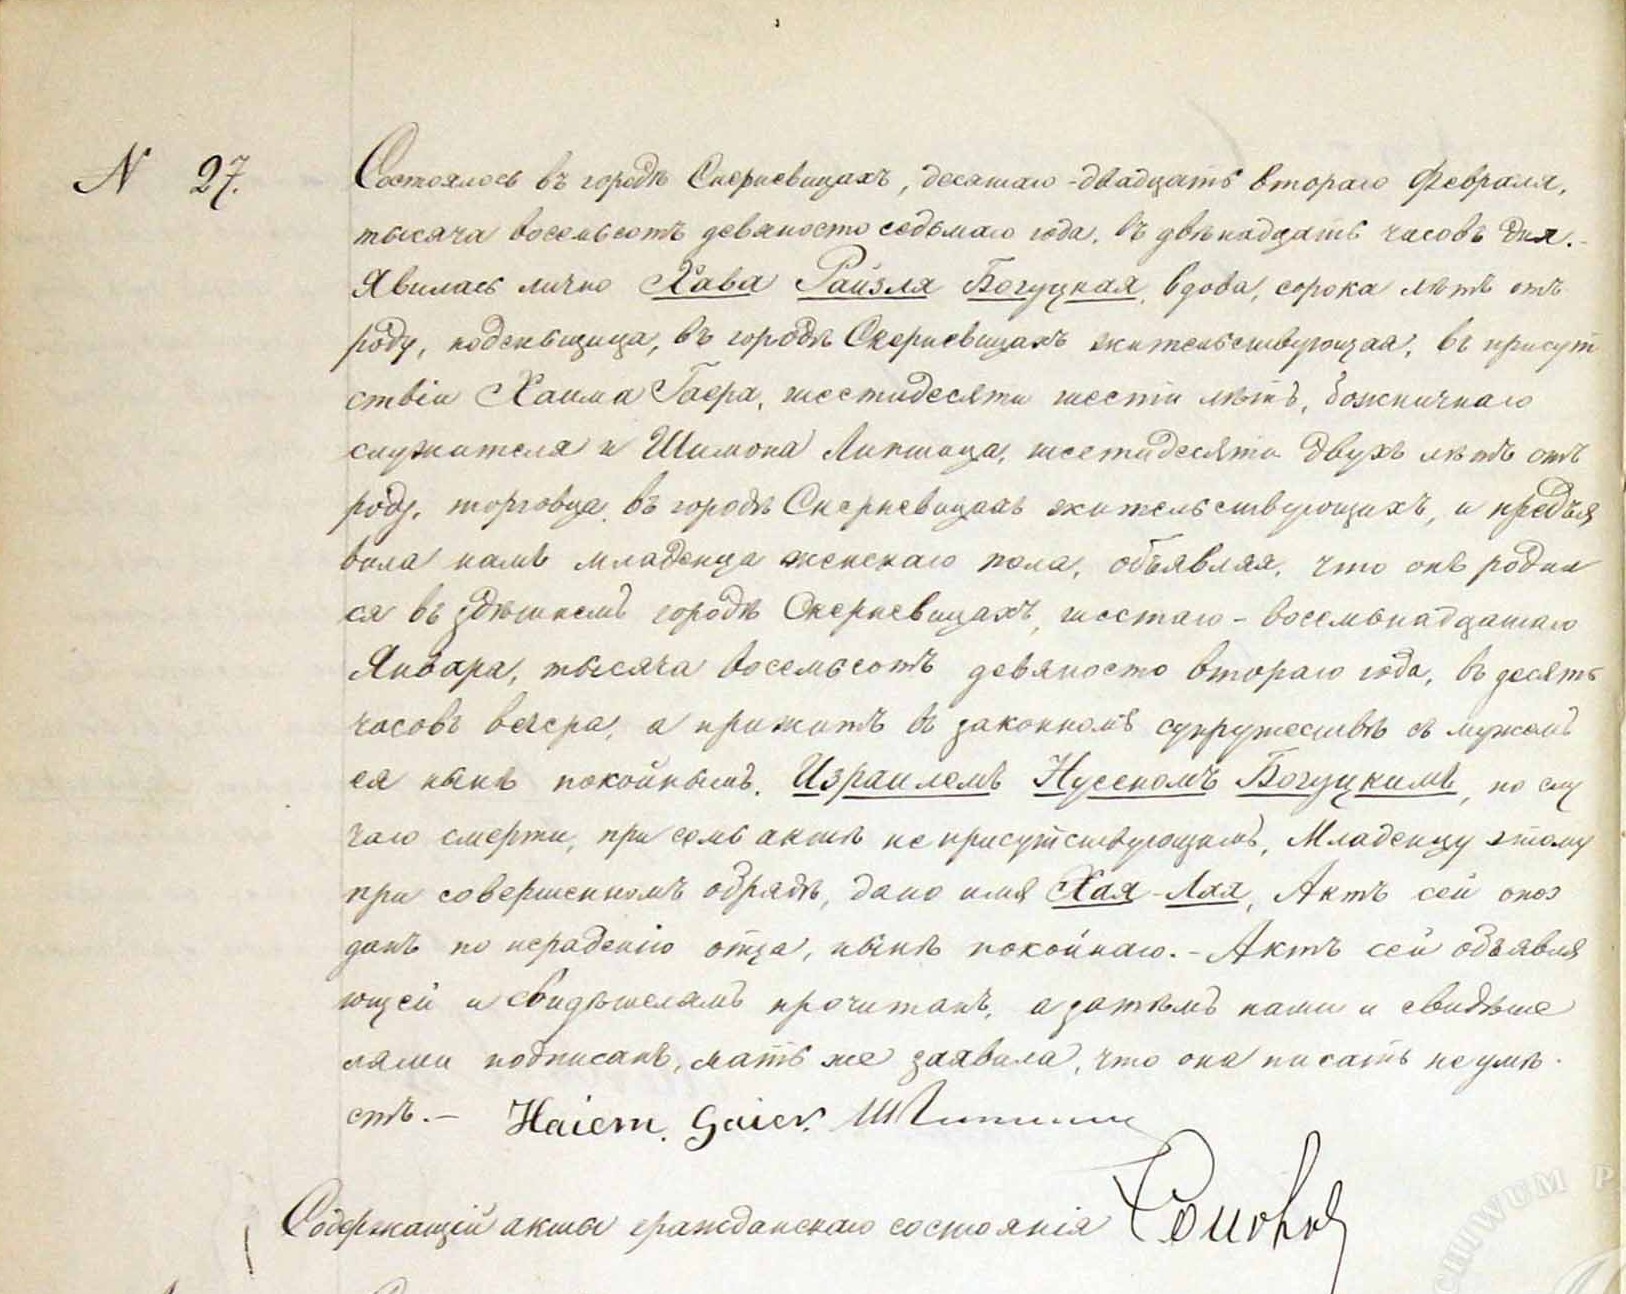 N 27.
Состоялось въ городѣ Скерневицахъ, десятаго - двадцать втораго Февраля,
тысяча восемьсотъ девяносто седьмаго года, въ двѣнадцать часовъ дня. -
Явилась лично Хава Райзля Богуцкая, вдова, сорока лѣтъ отъ
роду, поденьщица, въ городѣ Скерневицахъ жительствующая, въ присут
ствіи Хаима Гаера, шестидесяти шести лѣтъ, божничнаго
служителя и Шимона Липшица, шестидесяти двухъ лѣтъ отъ
роду, торговца, въ городѣ Скерневицахъ жительствующихъ, и предъя
вила намъ младенца женскаго пола, объявляя, что онъ родил
ся въ здѣшнемъ городѣ Скерневицахъ, шестаго - восемьнадцатаго
Января, тысяча восемьсотъ девяносто втораго года, въ десять
часовъ вечера, а прижитъ въ законномъ супружествѣ съ мужемъ
ея нынѣ покойнымъ, Израилемъ Нусеномъ Богуцкимъ, по слу
чаю смерти, при семъ актѣ не присутствующимъ, Младенцу этому
при совершенномъ обрядѣ, дано имя Хая-Лая, Актъ сей опоз
данъ по нерадѣнію отца, нынѣ покойнаго. - Актъ сей объявля
ющей и свидѣтелямъ прочитанъ, а затѣмъ нами и свидѣте
лями подписанъ, мать же заявила, что она писать не умѣ
етъ. - Haiem. Gaier. Ш Липшиц
Содержащій акты гражданскаго состоянія
CHIWUM P